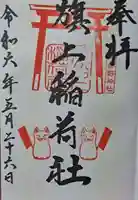 奉拝
旗上稲荷社
令和六年五月二十六日